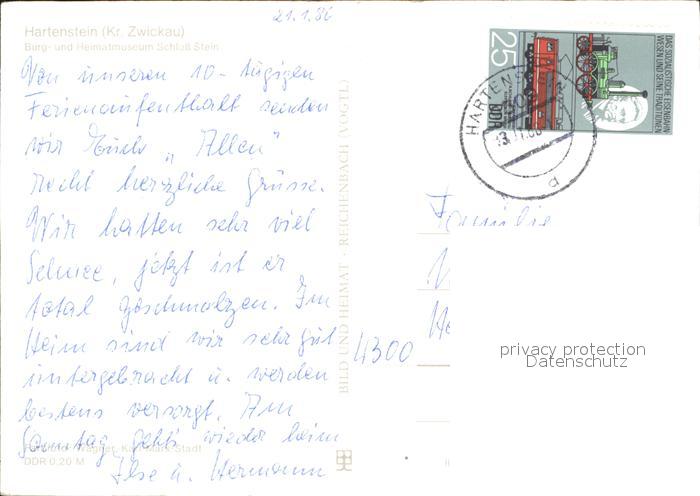 21.1.86
Hartenstein (Kr. Zwickau)
Burg- und Heimatmuseum Schloß Stein
Von unseren 10-tägigen
Ferienaufenthalt senden
wir Euch „Allen"
recht herzliche Grüsse.
Wir hatten sehr viel
Schnee, jetzt ist er
total geschmolzen. Im
Heim sind wir sehr gut
untergebracht u. werden
bestens versorgt. Am
Sonntag geht's wieder heim
Wagner, Karl-Marx-Stadt
DDR 0,20 M
Ilse u. Hermann
BILD UND HEIMAT · REICHENBACH (VOGTL)
25
DDR
DAS SOZIALISTISCHE EISENBAHN-
WESEN UND SEINE TRADITIONEN
HARTENS
Familie
4300
privacy protection
Datenschutz